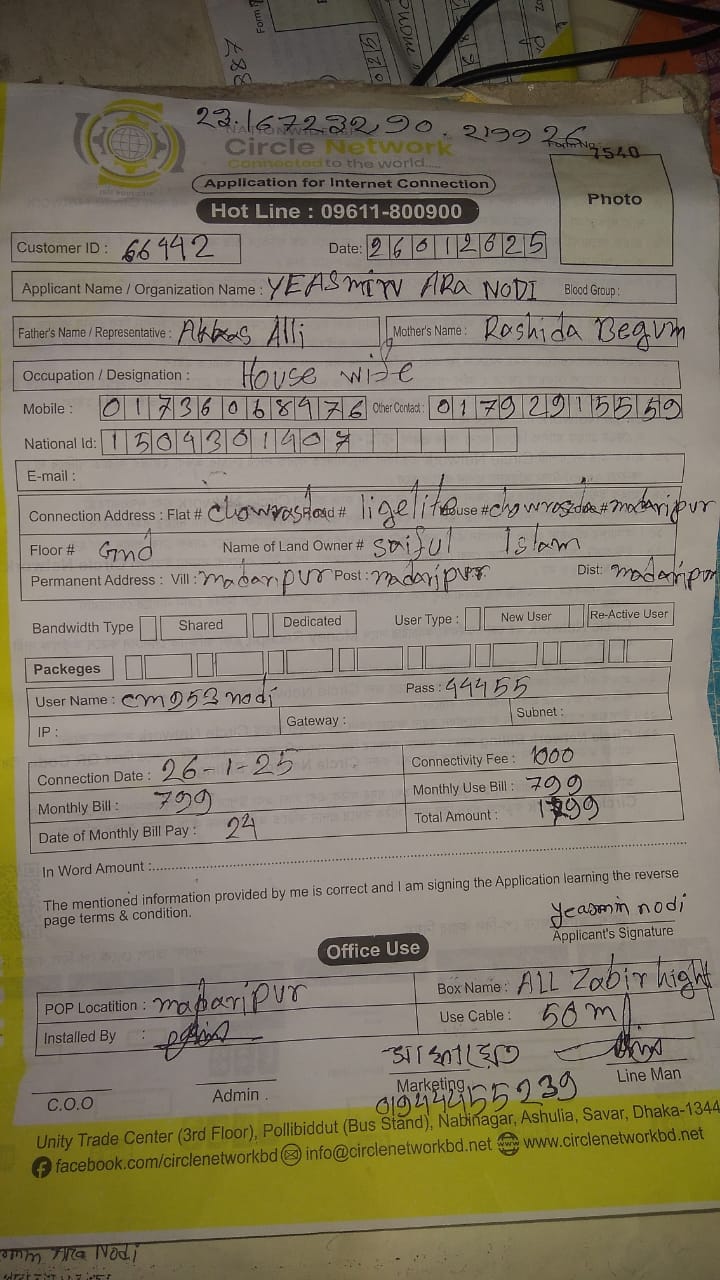 23.167232,90.219926
Circle Network
Connected to the world....
Form No. 7540
Application for Internet Connection
Photo
Hot Line : 09611-800900
Customer ID : 66442
Date: 26012025
Applicant Name / Organization Name : YEASMIN ARA NODI Blood Group :
Father's Name / Representative : Akkas Alli Mother's Name : Rashida Begum
Occupation / Designation : House wife
Mobile : 01736068976 Other Contact : 01792915559
National Id: 1504301407
E-mail :
Connection Address : Flat # chowrasta Road # ligelite House # chowrasda # madaripur
Floor # Gnd Name of Land Owner # saiful Islam
Permanent Address : Vill : madaripur Post : madaripur Dist: madaripur
Bandwidth Type Shared Dedicated User Type : New User Re-Active User
Packeges
User Name : cm953nodi Pass : 44455
IP : Gateway : Subnet :
Connection Date : 26-1-25 Connectivity Fee : 1000
Monthly Bill : 799 Monthly Use Bill : 799
Date of Monthly Bill Pay : 24 Total Amount : 1799
In Word Amount :
The mentioned information provided by me is correct and I am signing the Application learning the reverse
page terms & condition.
yeasmin nodi
Applicant's Signature
Office Use
POP Locatition : madaripur Box Name : ALL Zabir hight
Installed By : Use Cable : 50m
C.O.O Admin . Marketing Line Man
01944455239
Unity Trade Center (3rd Floor), Pollibiddut (Bus Stand), Nabinagar, Ashulia, Savar, Dhaka-1344
facebook.com/circlenetworkbd info@circlenetworkbd.net www.circlenetworkbd.net
Ara Nodi